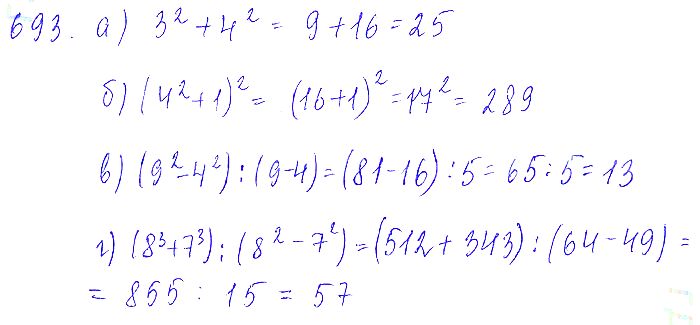 693. а) 3² + 4² = 9 + 16 = 25
б) (4² + 1)² = (16 + 1)² = 17² = 289
в) (9² - 4²) : (9 - 4) = (81 - 16) : 5 = 65 : 5 = 13
г) (8³ + 7³) : (8² - 7²) = (512 + 343) : (64 - 49) =
= 855 : 15 = 57